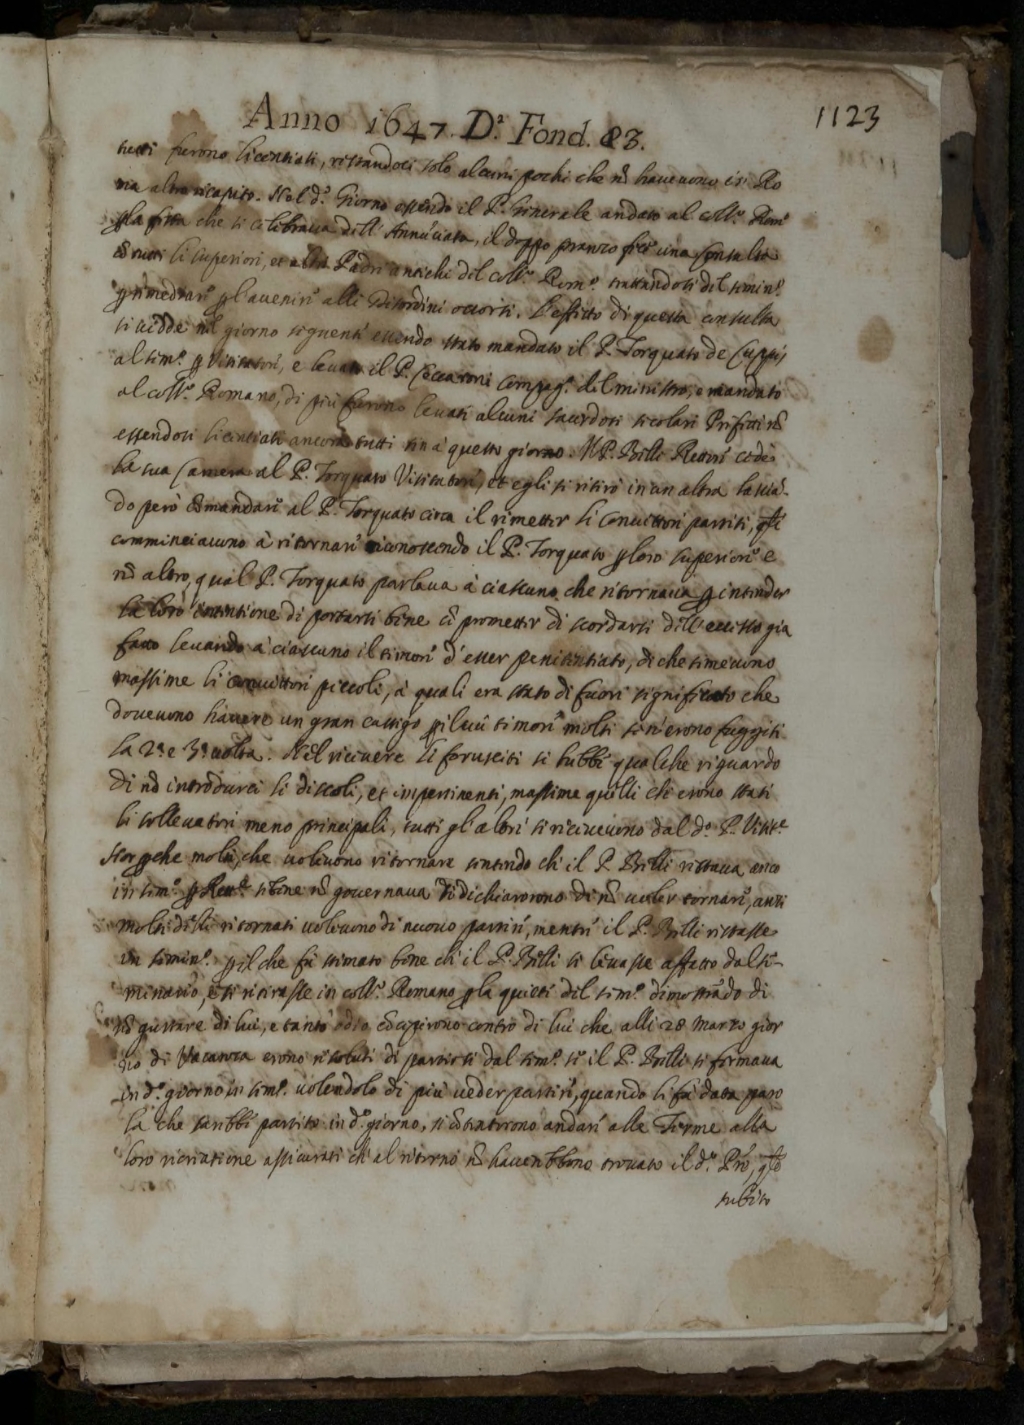 1123
Anno 1647. D.ª Fond. 83.
tutti furono licentiati, restandoci solo alcuni pochi che nõ havevono in Ro
ma altro ricapito. Nel d.º Giorno essendo il P. Generale andato al coll.º Rom.º
p la festa che si celebrava dell' Annũciata, il doppo pranzo fece una Consulta
cõ tutti li superiori, et altri Padri antichi del coll.º Rom.º trattandosi del semin.º
p rimediare p l'avenire alli disordini occorsi. L'effetto di questa consulta
si vidde nel giorno seguente essendo stato mandato il P. Torquato de Cuppis
al sem.º p Visitatore, e levato il P. Ceccaroni Compag.º del ministro, e mandato
al coll.º Romano, di più furono levati alcuni sacerdoti secolari Prefetti nõ
essendosi licentiati ancora tutti sin a questo giorno. Il P. Billi Rettore cedè
la sua Camera al P. Torquato Visitatore, et egli si ritirò in un altra lasciã
do però comandare al P. Torquato circa il rimetter li Convittori partiti, q̃li
comminciavono à ritornare riconoscendo il P. Torquato p loro superiore e
nõ altro, qual P. Torquato parlava à ciascuno che ritornava p intender
la loro intentione di portarsi bene cõ prometter di scordarsi dell' eccesso gia
fatto levando à ciascuno il timore d' esser penitentiato, di che temevono
massime li convittori piccoli, à quali era stato di fuori significato che
dovevono havere un gran castigo p il cui timore molti se n'erono fuggiti
la 2.ª e 3.ª volta. Nel ricivere li forusciti si hebbe qualche riguardo
di nõ introdurci li discoli, et impertinenti, massime quelli che erono stati
li sollevatori meno principali, tutti gl' altri si ricevevono dal d.º P. Visit.e
Hor p che molti, che volevono ritornare sentendo ch' il P. Billi restava anco
in sem.º p Rett.e se bene nõ governava si dichiarorono di nõ voler tornare, anzi
molti delli ritornati volevono di nuovo partire, mentre il P. Billi restasse
in semin.º p il che fu stimato bene ch' il P. Billi si levasse affatto dal se-
minario, e si ritirasse in coll.º Romano p la quiete del sem.º dimostrãdo di
nõ gustare di lui, e tanto odio cõcepirono contro di lui che alli 28 Marzo gior
no di Vacanza erono risoluti di partirsi dal sem.º se il P. Billi si fermava
in d.º giorno in sem.º volendolo di più veder partire, quando li fù data paro
la che sarebbe partito in d.º giorno, si cõtentorono andare alle Terme alla
loro ricreatione assicurati ch' al ritorno nõ haverebbono trovato il d.º Pre, q̃le
subito